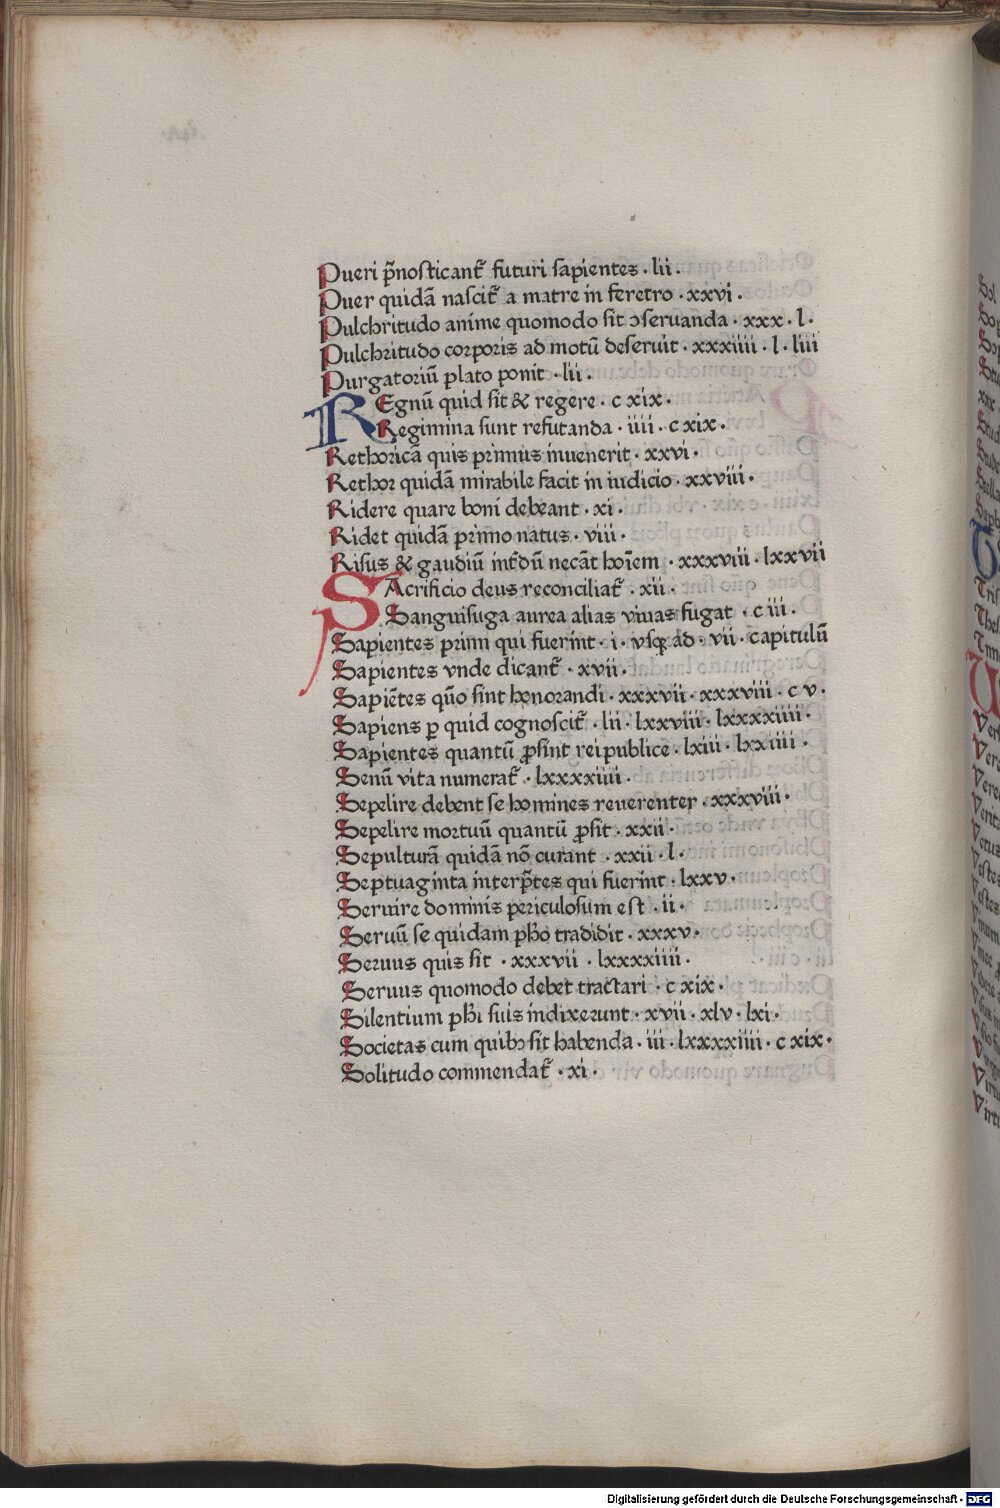 Pueri p̄nosticant᷑ futuri sapientes · lii ·
Puer quidā nascit᷑ a matre in feretro · xxvi ·
Pulchritudo anime quomodo sit ɔseruanda · xxx · l ·
Pulchritudo corporis ad motū deseruit · xxxiiii · l · liii
Purgatoriū plato ponit · lii ·
REgnū quid sit & regere · c xix ·
Regimina sunt refutanda · iiii · c xix ·
Rethoricā quis primus inuenerit · xxvi ·
Rethor quidā mirabile facit in iudicio · xxviii ·
Ridere quare boni debeant · xi ·
Ridet quidā primo natus · viii ·
Risus & gaudiū int᷑dū necāt hoīem · xxxviii · lxxvii
SAcrificio deus reconciliat᷑ · xii ·
Sanguisuga aurea alias viuas fugat · c iii ·
Sapientes primi qui fuerint · i · vsqꝫ ad · vii · capitulū
Sapientes vnde dicant᷑ · xvii ·
Sapiētes quō sint honorandi · xxxvii · xxxviii · c v ·
Sapiens ꝑ quid cognoscit᷑ · lii · lxxviii · lxxxxiiii ·
Sapientes quantū ꝓsint rei publice · lxiii · lxxiiii ·
Senū vita numerat᷑ · lxxxxiiii ·
Sepelire debent se homines reuerenter · xxxviii ·
Sepelire mortuū quantū ꝓsit · xxii ·
Sepulturā quidā nō curant · xxii · l ·
Septuaginta interp̄tes qui fuerint · lxxv ·
Seruire dominis periculosum est · ii ·
Seruū se quidam ph̄o tradidit · xxxv ·
Seruus quis sit · xxxvii · lxxxxiiii ·
Seruus quomodo debet tractari · c xix ·
Silentium ph̄i suis indixerunt · xvii · xlv · lxi ·
Societas cum quibꝫ sit habenda · iii · lxxxxiiii · c xix ·
Solitudo commendat᷑ · xi ·
Digitalisierung gefördert durch die Deutsche Forschungsgemeinschaft - DFG